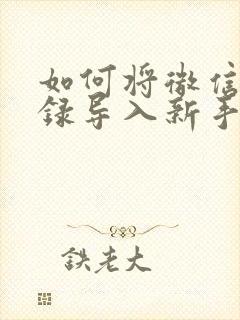 如何将微信
録导入新手
鉄老大